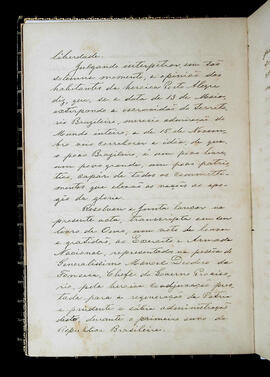 liberdade.
Julgando interpretar em tão
solemne momento, a opinião dos
habitantes da heroica Porto Alegre
diz, que, se a data de 13 de Maio,
extirpando a escravidão do Territo
rio Brazileiro, mereceu admiração do
Mundo inteiro, a de 15 de Novem
bro veio corroborar a idéa, de que
o povo Brazileiro, é um povo livre,
um povo grande, um povo patrio
tico, capaz de todos os commetti-
mentos que elevão as nações ao apo
gêo da gloria.
Resolveu a Junta lançar na
presente acta, transcripta em seu
livro de Ouro, um voto de louvor
e gratidão, ao Exercito e Armada
Nacional, representados na pessôa do
Generalissimo Manoel Deodoro da
Fonseca, Chefe do Governo Proviso
rio, pela heroica coadjuvação pres
tada para a regeneração da Patria
e prudente e sabia administração
desta, durante o primeiro anno da
Republica Brasileira.